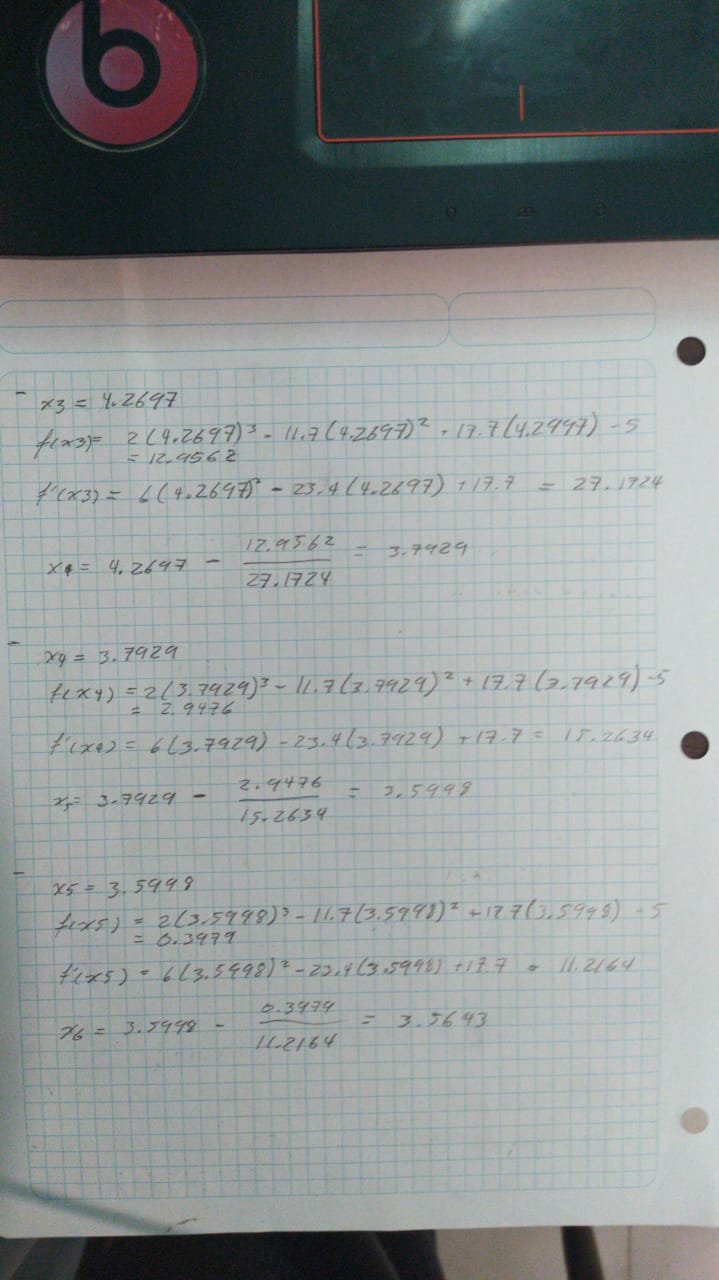 b
- x3 = 4.2697
f(x3) = 2(4.2697)³ - 11.7(4.2697)² + 17.7(4.2997) - 5
= 12.9562
f'(x3) = 6(4.2697)² - 23.4(4.2697) + 17.7 = 27.1724
x4 = 4.2697 - 12.9562/27.1724 = 3.7929
- x4 = 3.7929
f(x4) = 2(3.7929)³ - 11.7(3.7929)² + 17.7(3.7929) - 5
= 2.9476
f'(x4) = 6(3.7929) - 23.4(3.7929) + 17.7 = 15.2634
x5 = 3.7929 - 2.9476/15.2634 = 3.5998
- x5 = 3.5998
f(x5) = 2(3.5998)³ - 11.7(3.5998)² + 17.7(3.5998) - 5
= 0.3979
f'(x5) = 6(3.5998)² - 23.4(3.5998) + 17.7 = 11.2164
x6 = 3.5998 - 0.3979/11.2164 = 3.5643